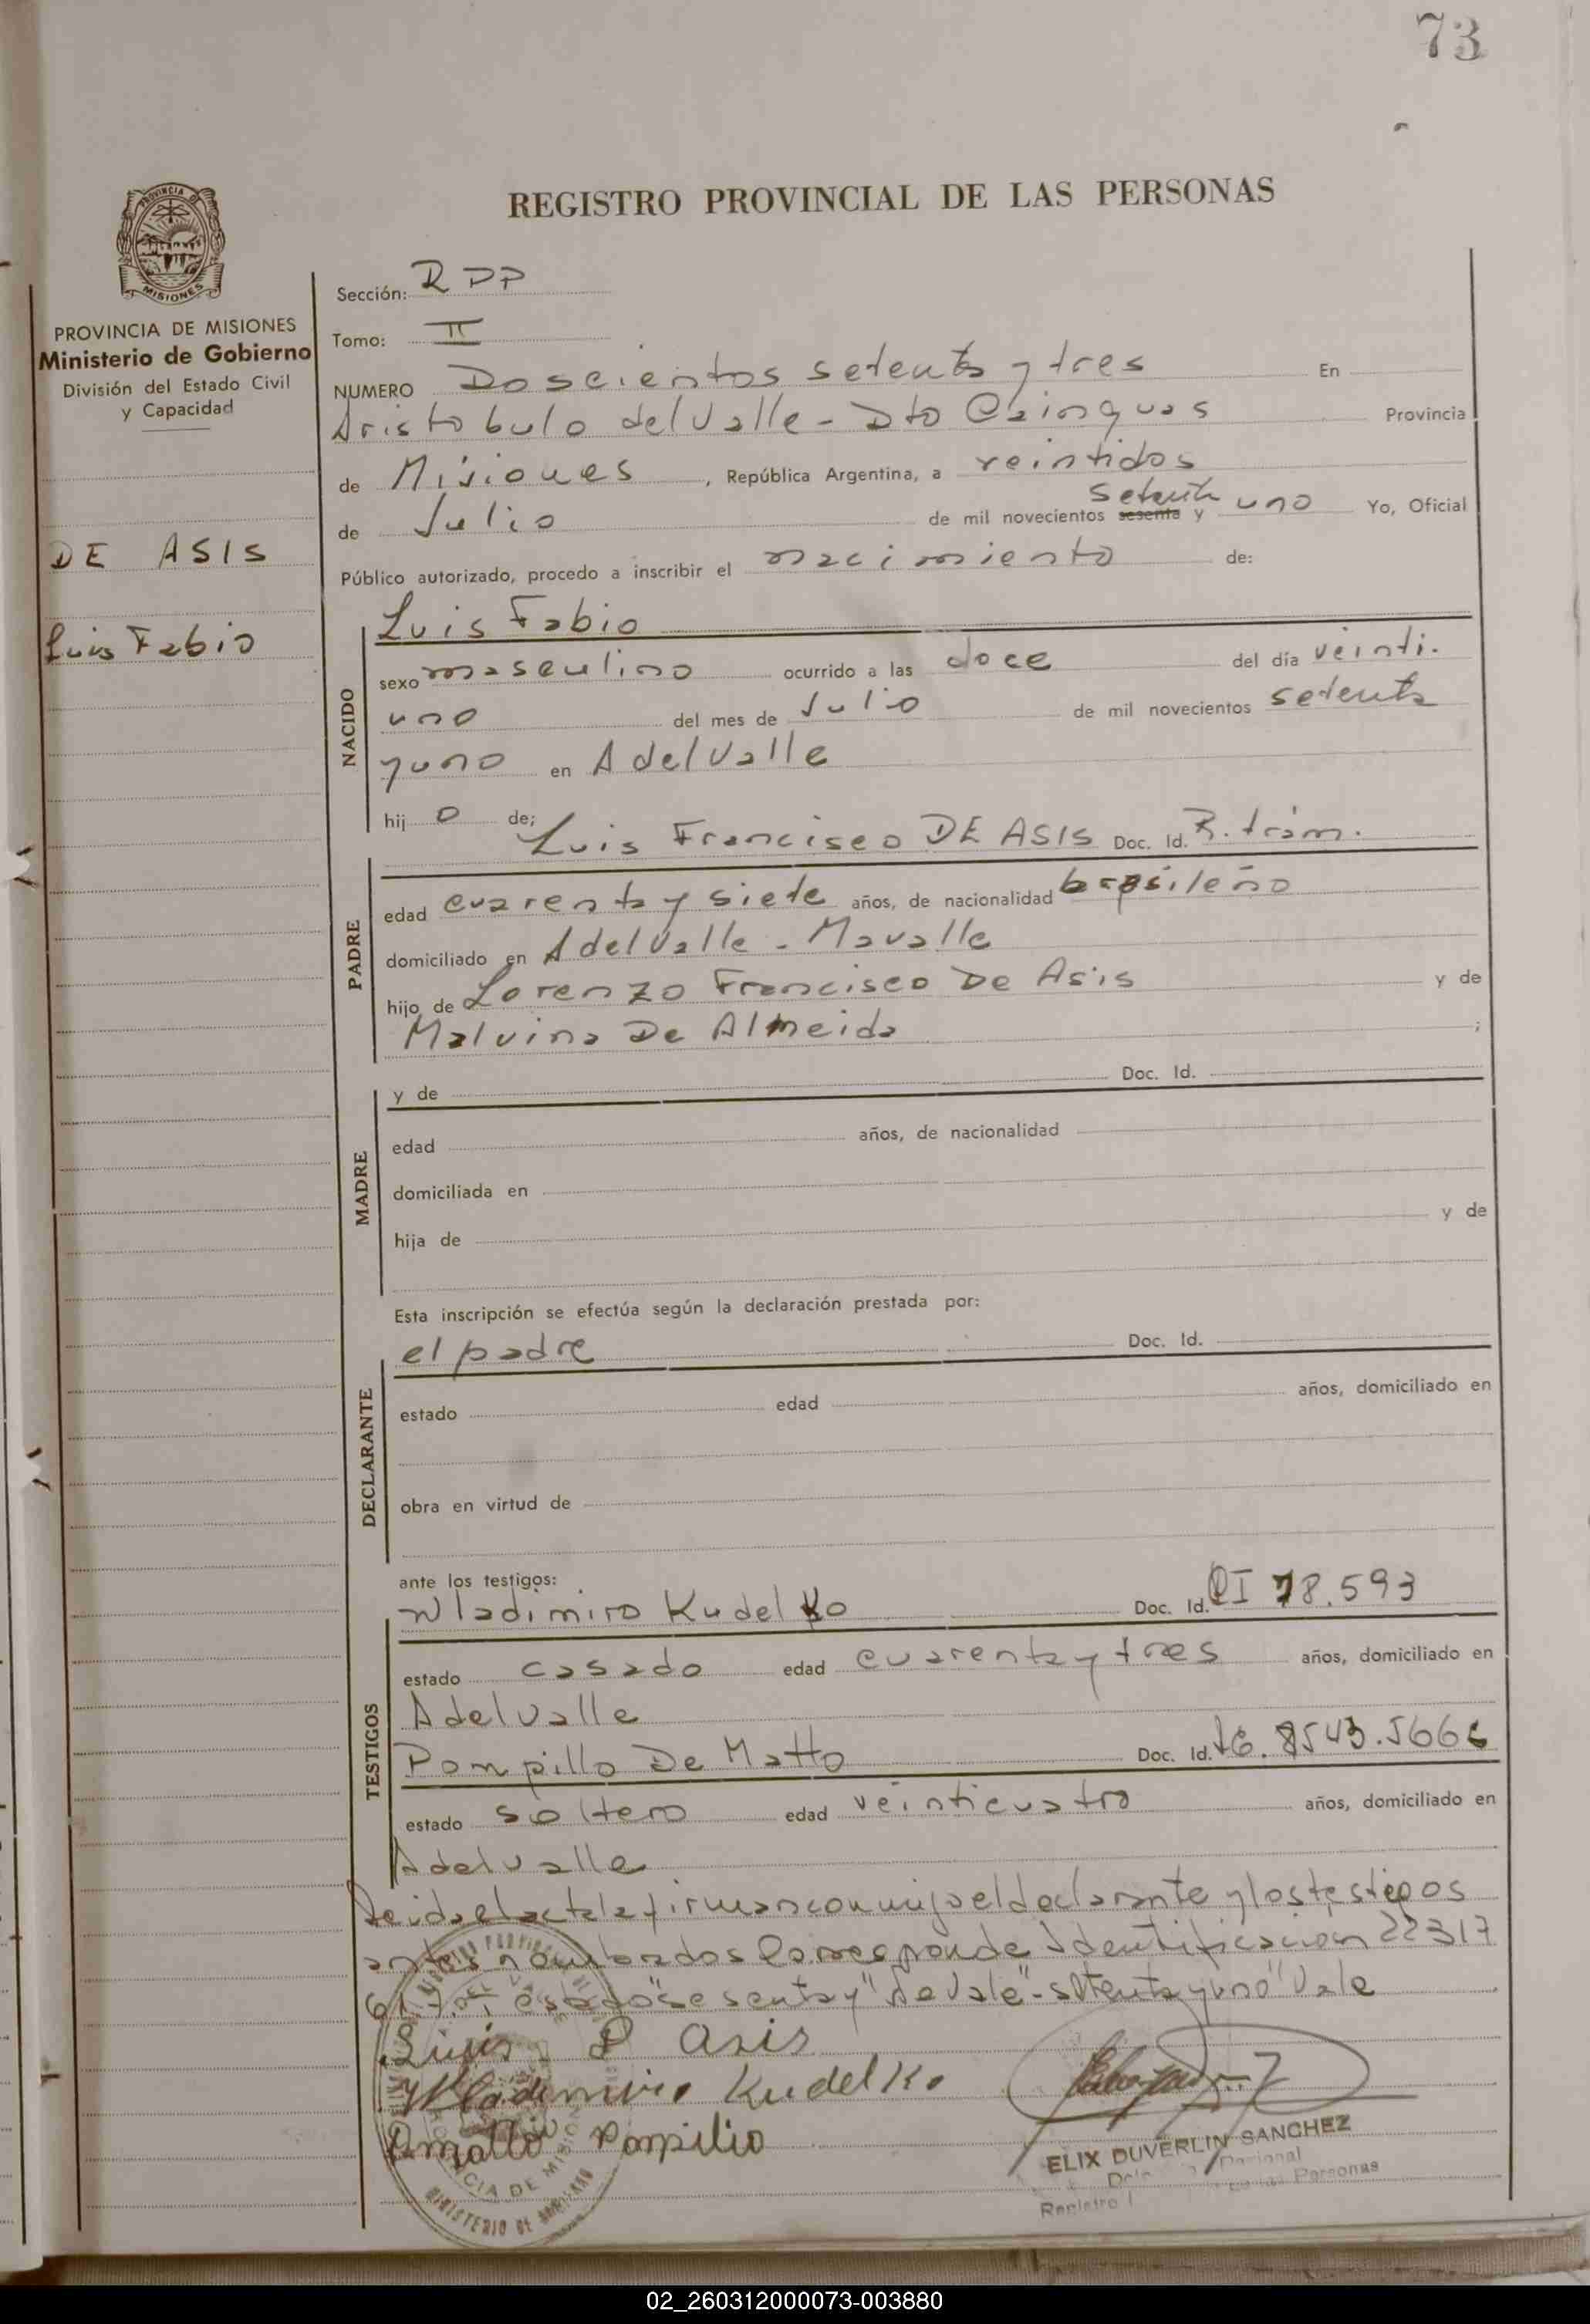 73
REGISTRO PROVINCIAL DE LAS PERSONAS
PROVINCIA
MISIONES
PROVINCIA DE MISIONES
Ministerio de Gobierno
División del Estado Civil
y Capacidad
DE ASIS
Luis Fabio
Sección: RDP
Tomo: II
NUMERO Doscientos setenta y tres En
Aristobulo del Valle - Dto Cainguas Provincia
de Misiones, República Argentina, a veintidos
setenta
de Julio de mil novecientos sesenta y uno Yo, Oficial
Público autorizado, procedo a inscribir el nacimiento de:
NACIDO
Luis Fabio
sexo masculino ocurrido a las doce del día veinti-
uno del mes de Julio de mil novecientos setenta
y uno en A del Valle
hij o de; Luis Francisco DE ASIS Doc. Id. R. trám.
PADRE
edad cuarenta y siete años, de nacionalidad brasileño
domiciliado en A del Valle - Mavalle
hijo de Lorenzo Francisco De Asis y de
Malvina De Almeida ;
MADRE
y de Doc. Id.
edad años, de nacionalidad
domiciliada en
hija de y de
Esta inscripción se efectúa según la declaración prestada por:
el padre Doc. Id.
DECLARANTE
estado edad años, domiciliado en
obra en virtud de
ante los testigos:
Wladimiro Kudelko Doc. Id. CI 78.593
TESTIGOS
estado casado edad cuarenta y tres años, domiciliado en
A del Valle
Pompillo De Matto Doc. Id.
estado soltero edad veinticuatro años, domiciliado en
A del Valle
Leida el acta la firman conmigo el declarante y los testigos
antes nombrados Corresponde Identificacion 22317
"sesenta y" "setenta y uno" Vale
Luis D Asis
Wladimiro Kudelko
Pompilio
ELIX DUVERLIN SANCHEZ
Personas
Registro
PROVINCIA DE MISIONES
MINISTERIO DE GOBIERNO
02_260312000073-003880